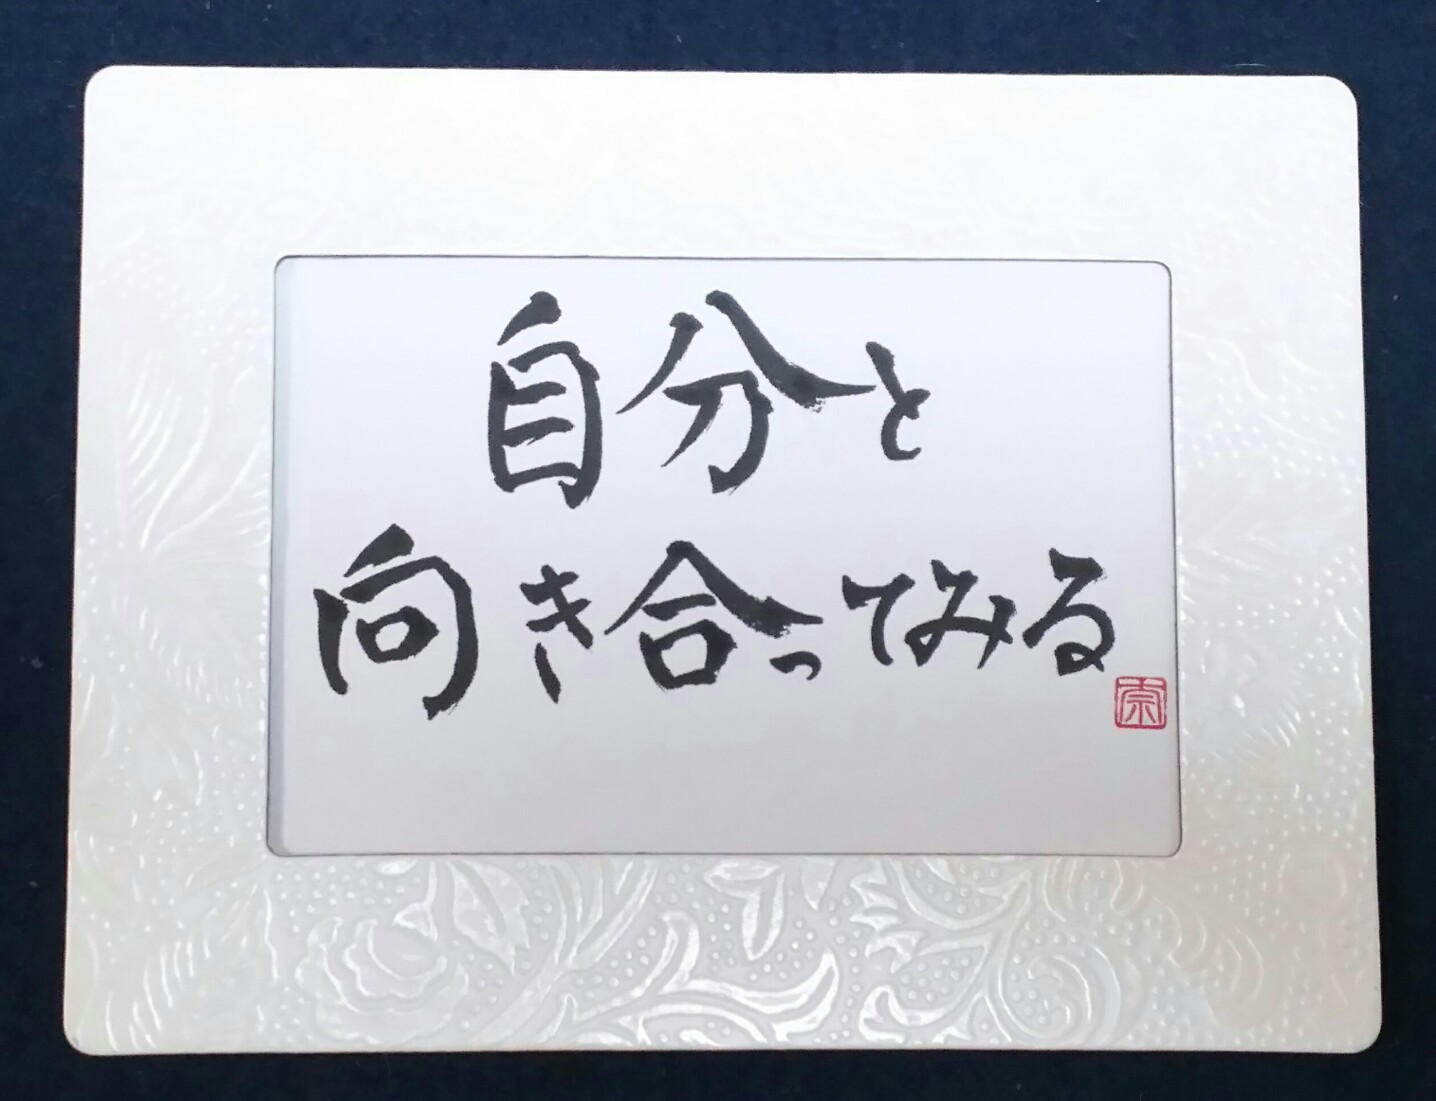 自分と
向き合ってみる
宗